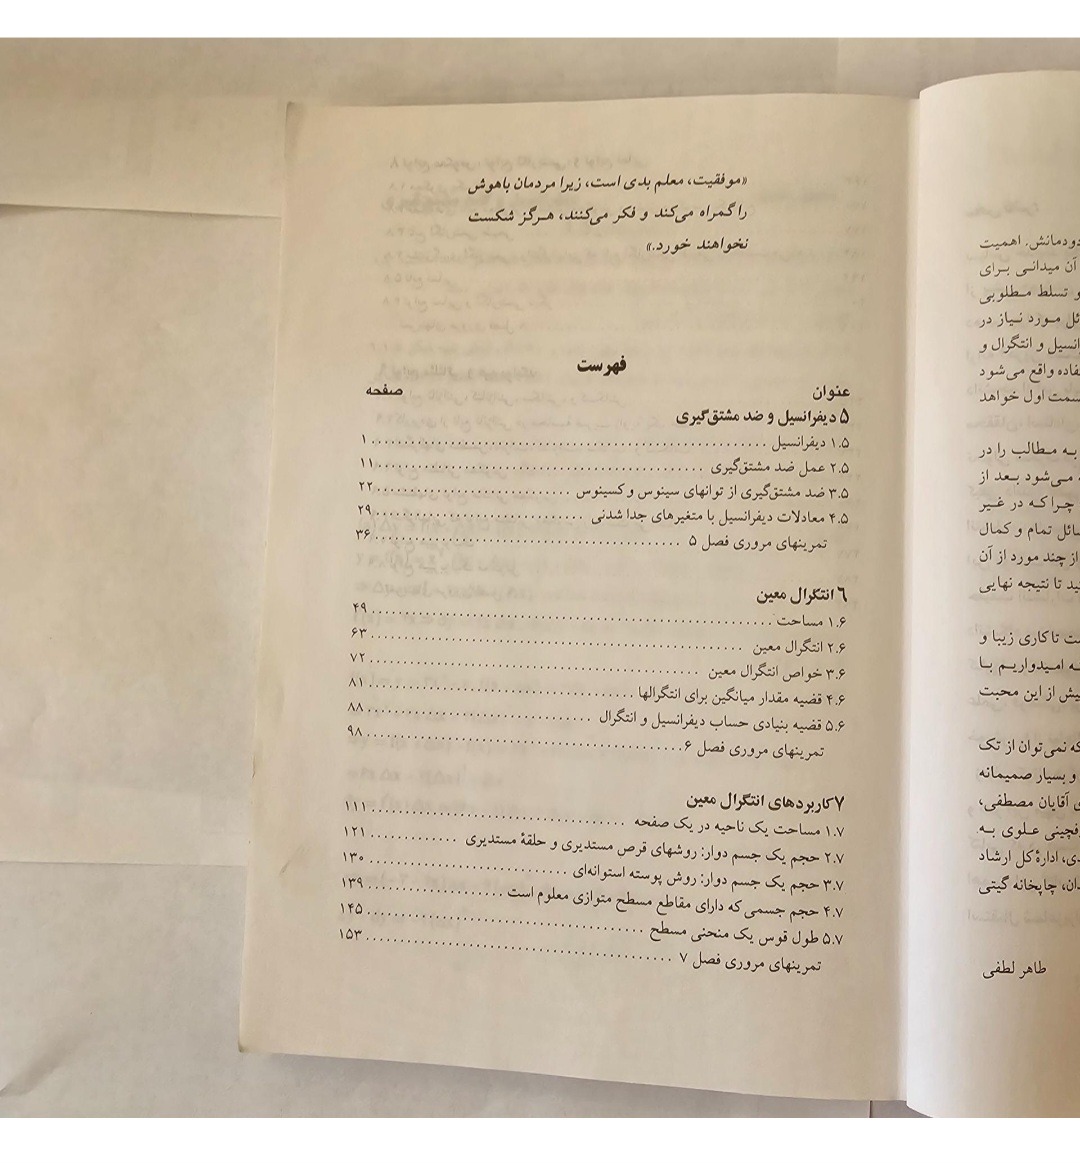 «موفقیت، معلم بدی است، زیرا مردمان باهوش
را گمراه می‌کند و فکر می‌کنند، هرگز شکست
نخواهند خورد.»
فهرست
عنوان صفحه
۵ دیفرانسیل و ضد مشتق‌گیری
۱.۵ دیفرانسیل ........ ۱
۲.۵ عمل ضد مشتق‌گیری ........ ۱۱
۳.۵ ضد مشتق‌گیری از توانهای سینوس و کسینوس ........ ۲۲
۴.۵ معادلات دیفرانسیل با متغیرهای جدا شدنی ........ ۲۹
تمرینهای مروری فصل ۵ ........ ۳۶
۶ انتگرال معین
۱.۶ مساحت ........ ۴۹
۲.۶ انتگرال معین ........ ۶۳
۳.۶ خواص انتگرال معین ........ ۷۲
۴.۶ قضیه مقدار میانگین برای انتگرالها ........ ۸۱
۵.۶ قضیه بنیادی حساب دیفرانسیل و انتگرال ........ ۸۸
تمرینهای مروری فصل ۶ ........ ۹۸
۷ کاربردهای انتگرال معین
۱.۷ مساحت یک ناحیه در یک صفحه ........ ۱۱۱
۲.۷ حجم یک جسم دوار: روشهای قرص مستدیری و حلقهٔ مستدیری ........ ۱۲۱
۳.۷ حجم یک جسم دوار: روش پوسته استوانه‌ای ........ ۱۳۰
۴.۷ حجم جسمی که دارای مقاطع مسطح متوازی معلوم است ........ ۱۳۹
۵.۷ طول قوس یک منحنی مسطح ........ ۱۴۵
تمرینهای مروری فصل ۷ ........ ۱۵۳
دودمانش. اهمیت
آن میدانی برای
و تسلط مطلوبی
مورد نیاز در
و انتگرال و
واقع می‌شود
اول خواهد
به مطالب را در
می‌شود بعد از
چرا که در غیر
تمام و کمال
از چند مورد از آن
تا نتیجه نهایی
تا کاری زیبا و
امیدواریم با
از این محبت
که نمی‌توان از تک
و بسیار صمیمانه
آقایان مصطفی،
علوی به
ادارهٔ کل ارشاد
چاپخانه گیتی
طاهر لطفی